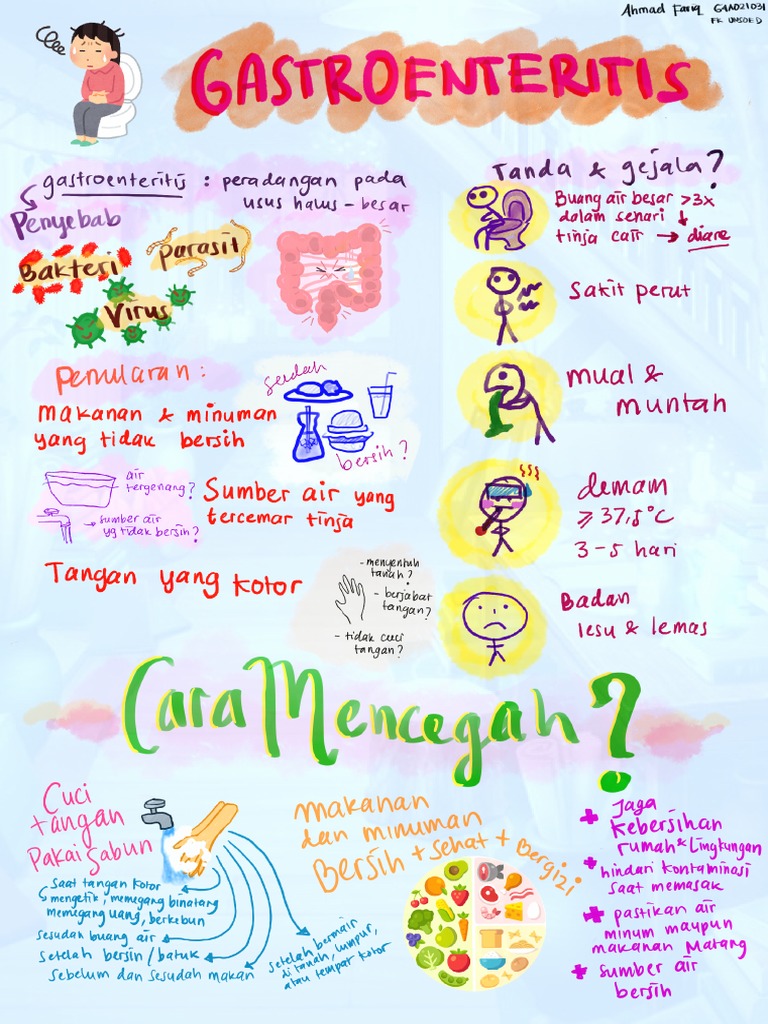 Ahmad Fariq G1A021031
FK UNSOED
GASTROENTERITIS
gastroenteritis : peradangan pada
usus halus - besar
Penyebab
Bakteri
Parasit
Virus
Penularan :
makanan & minuman
yang tidak bersih
sudah
bersih?
air
tergenang?
sumber air
yg tidak bersih?
Sumber air yang
tercemar tinja
Tangan yang kotor
- menyentuh
tanah?
- berjabat
tangan?
- tidak cuci
tangan?
Tanda & gejala?
Buang air besar >3x
dalam sehari
tinja cair → diare
Sakit perut
mual &
muntah
demam
≥ 37,5°C
3-5 hari
Badan
lesu & lemas
Cara Mencegah?
Cuci
tangan
Pakai Sabun
Saat tangan kotor
mengetik, memegang binatang
memegang uang, berkebun
sesudah buang air
Setelah bersin/batuk
Sebelum dan sesudah makan
setelah bermain
di tanah, lumpur,
atau tempat kotor
makanan
dan minuman
Bersih + sehat + Bergizi
+ Jaga
Kebersihan
rumah & Lingkungan
+ hindari kontaminasi
saat memasak
+ pastikan air
minum maupun
makanan Matang
+ sumber air
bersih